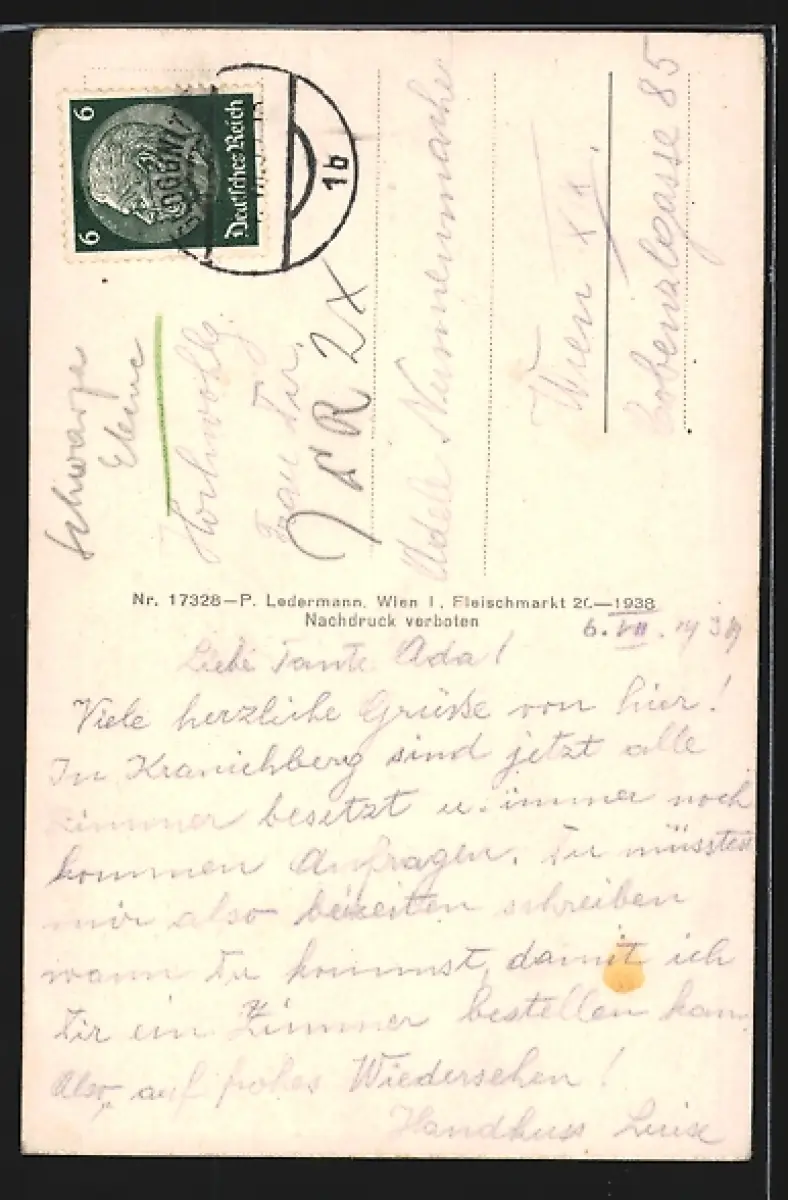 6
6
Deutsches Reich
1b
Schwarza
Hochwohlg.
Frau Dir.
2X
Adele
Wien XX.
Cobenzlgasse 85
Nr. 17328—P. Ledermann, Wien I, Fleischmarkt 20.—1938
Nachdruck verboten
6. VII. 1939
Liebe Tante Ada!
Viele herzliche Grüsse von hier!
In Kranichberg sind jetzt alle
Zimmer besetzt u. immer noch
kommen Anfragen. Du müsstest
mir also beizeiten schreiben
wann Du kommst, damit ich
Dir ein Zimmer bestellen kann.
Also, auf frohes Wiedersehen!
Handkuss Luise